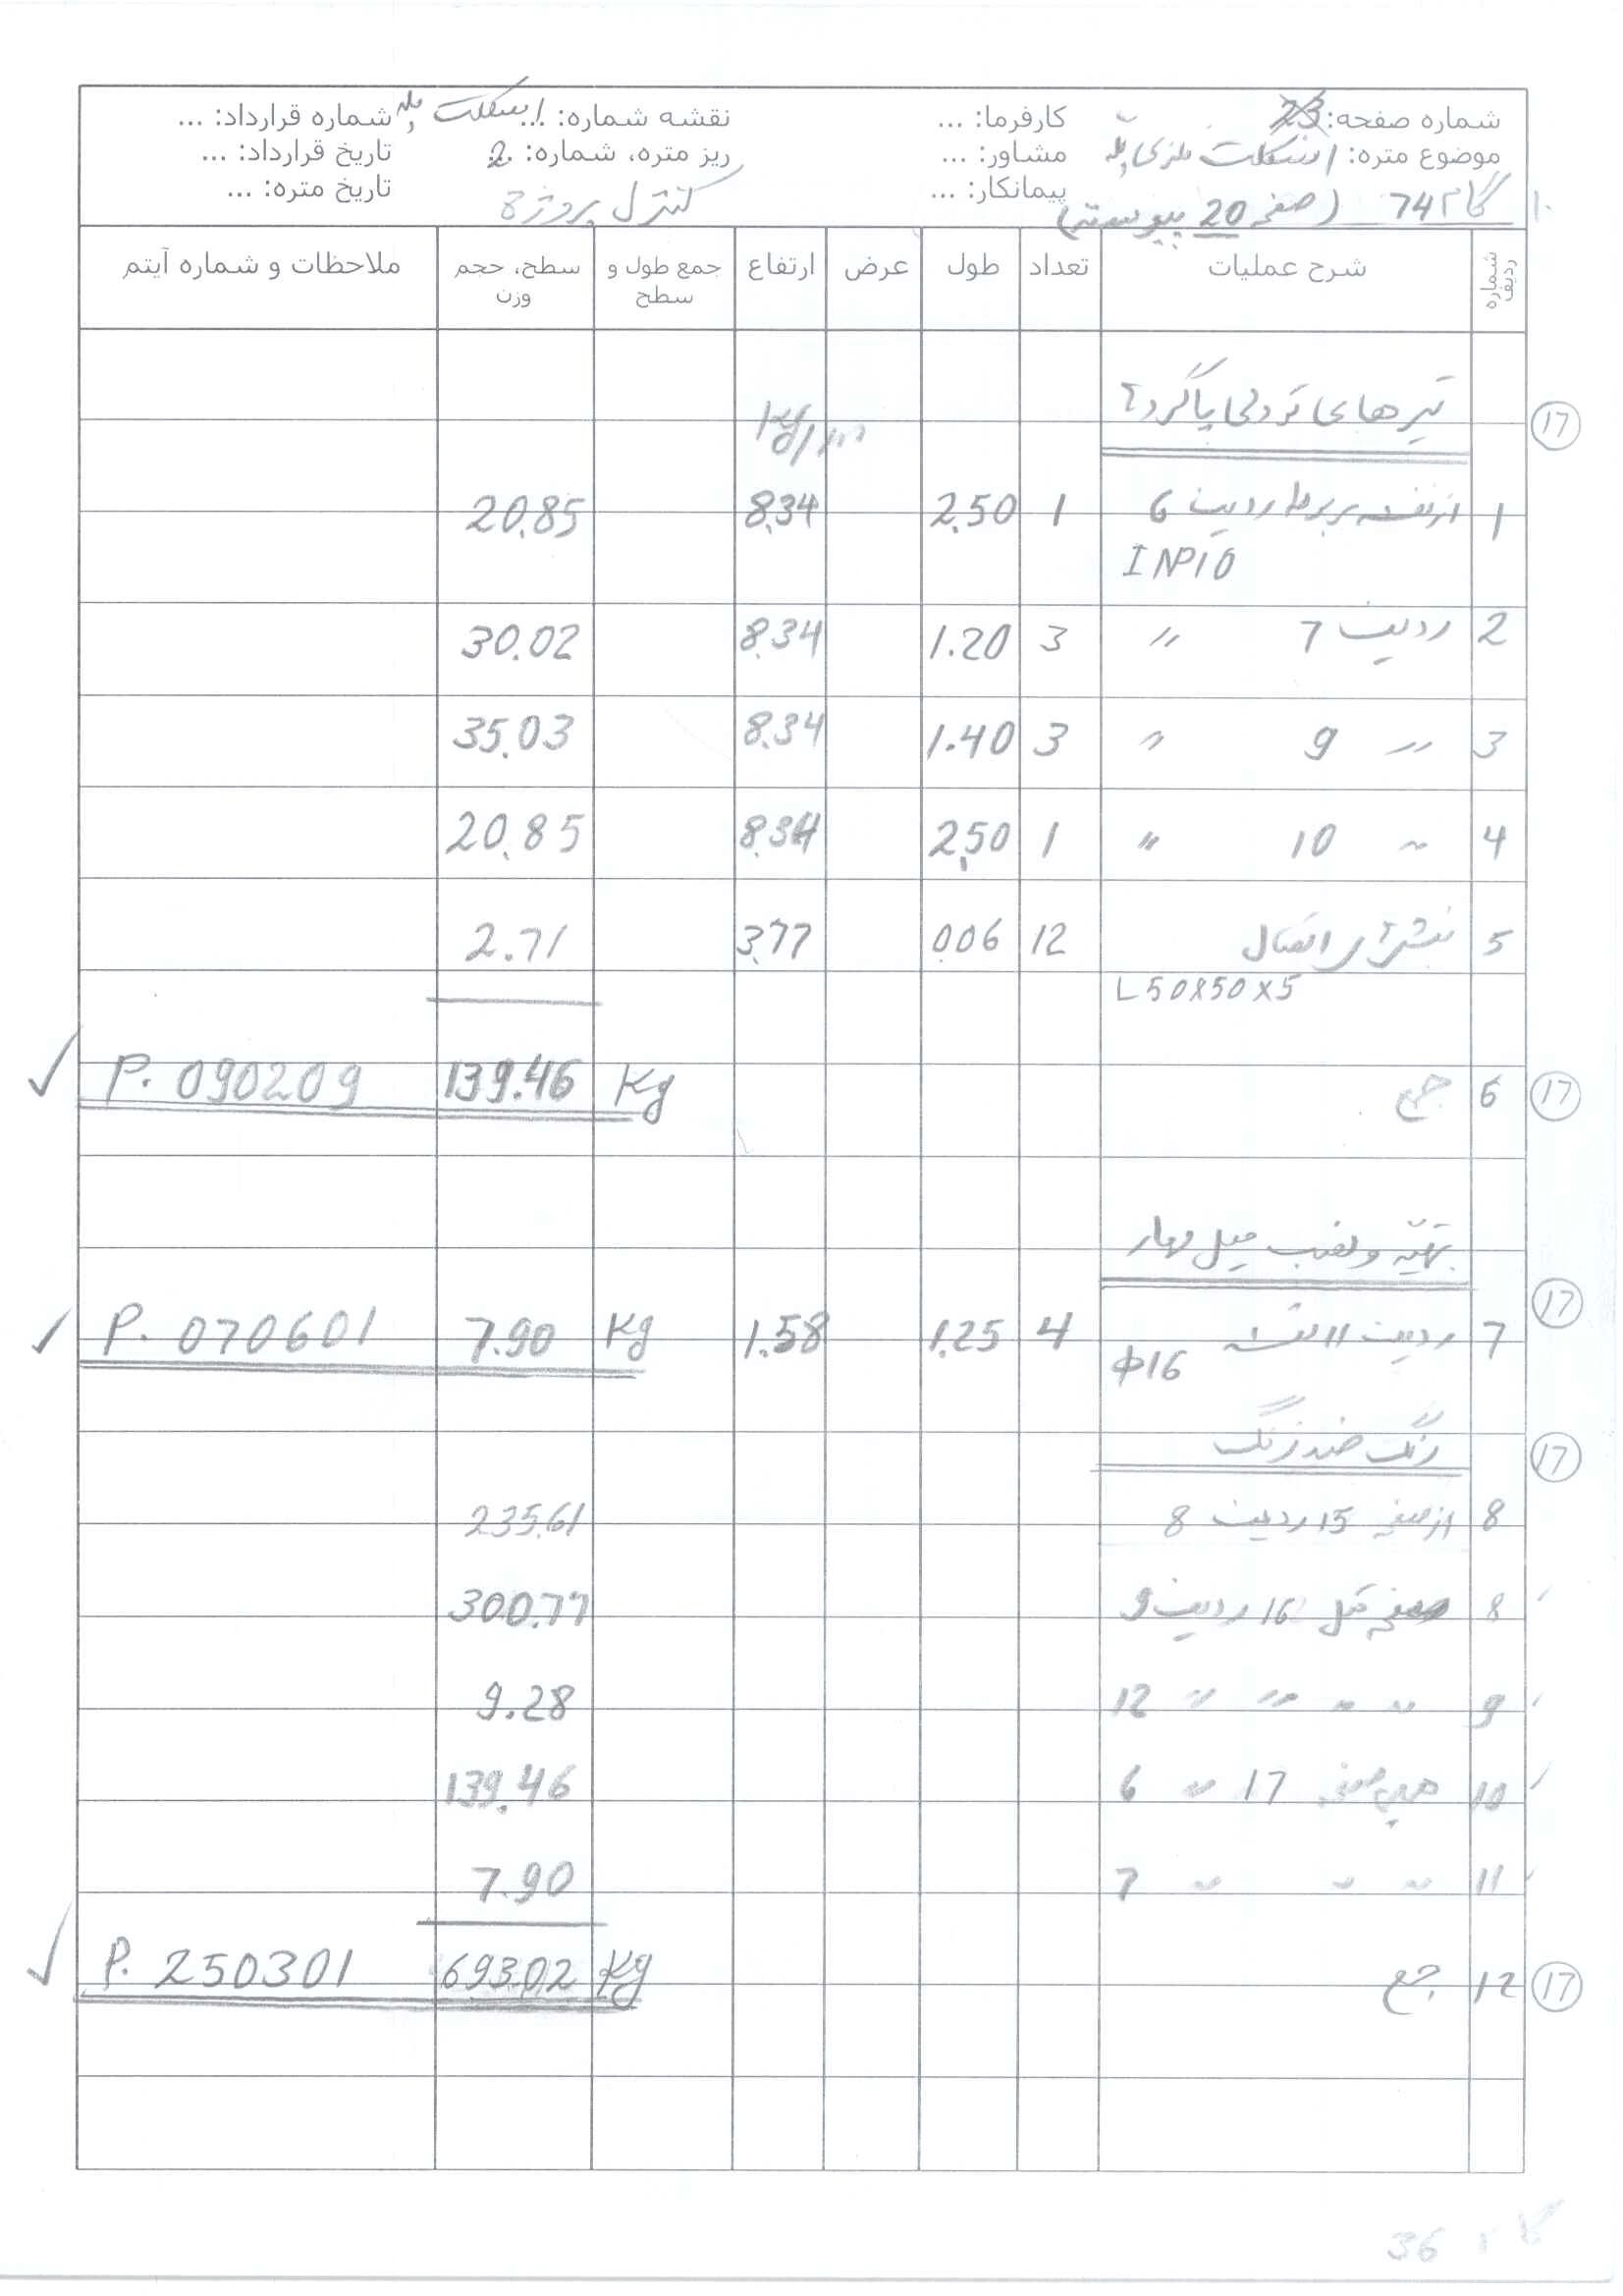 شماره صفحه: 23 کارفرما: ... نقشه شماره: اسکلت پله شماره قرارداد: ...
موضوع متره: اسکلت فلزی پله مشاور: ... ریز متره، شماره: 2 تاریخ قرارداد: ...
گام 74 (صفحه 20 پیوسته) پیمانکار: ... کنترل پروژه تاریخ متره: ...
شماره ردیف شرح عملیات تعداد طول عرض ارتفاع جمع طول و سطح سطح، حجم وزن ملاحظات و شماره آیتم
17 تیرهای تودلی پاگرد
kg/m
1 از نقشه ردیف 6 1 2.50 8.34 20.85
INP10
2 ردیف 7 " 3 1.20 8.34 30.02
3 " 9 " 3 1.40 8.34 35.03
4 " 10 " 1 2.50 8.34 20.85
5 نبشی اتصال 12 0.06 3.77 2.71
L50x50x5
17 6 جمع Kg 139.46 P. 090209
17 تهیه و نصب میل مهار
7 ردیف 11 نقشه 4 1.25 1.58 Kg 7.90 P. 070601
ϕ16
17 رنگ ضد زنگ
8 از صفحه 15 ردیف 8 235.61
8 صفحه قبل 16 ردیف 9 300.77
9 " " " " 12 9.28
10 همین صفحه 17 " 6 139.46
11 " " " 7 7.90
17 12 جمع Kg 693.02 P. 250301
36